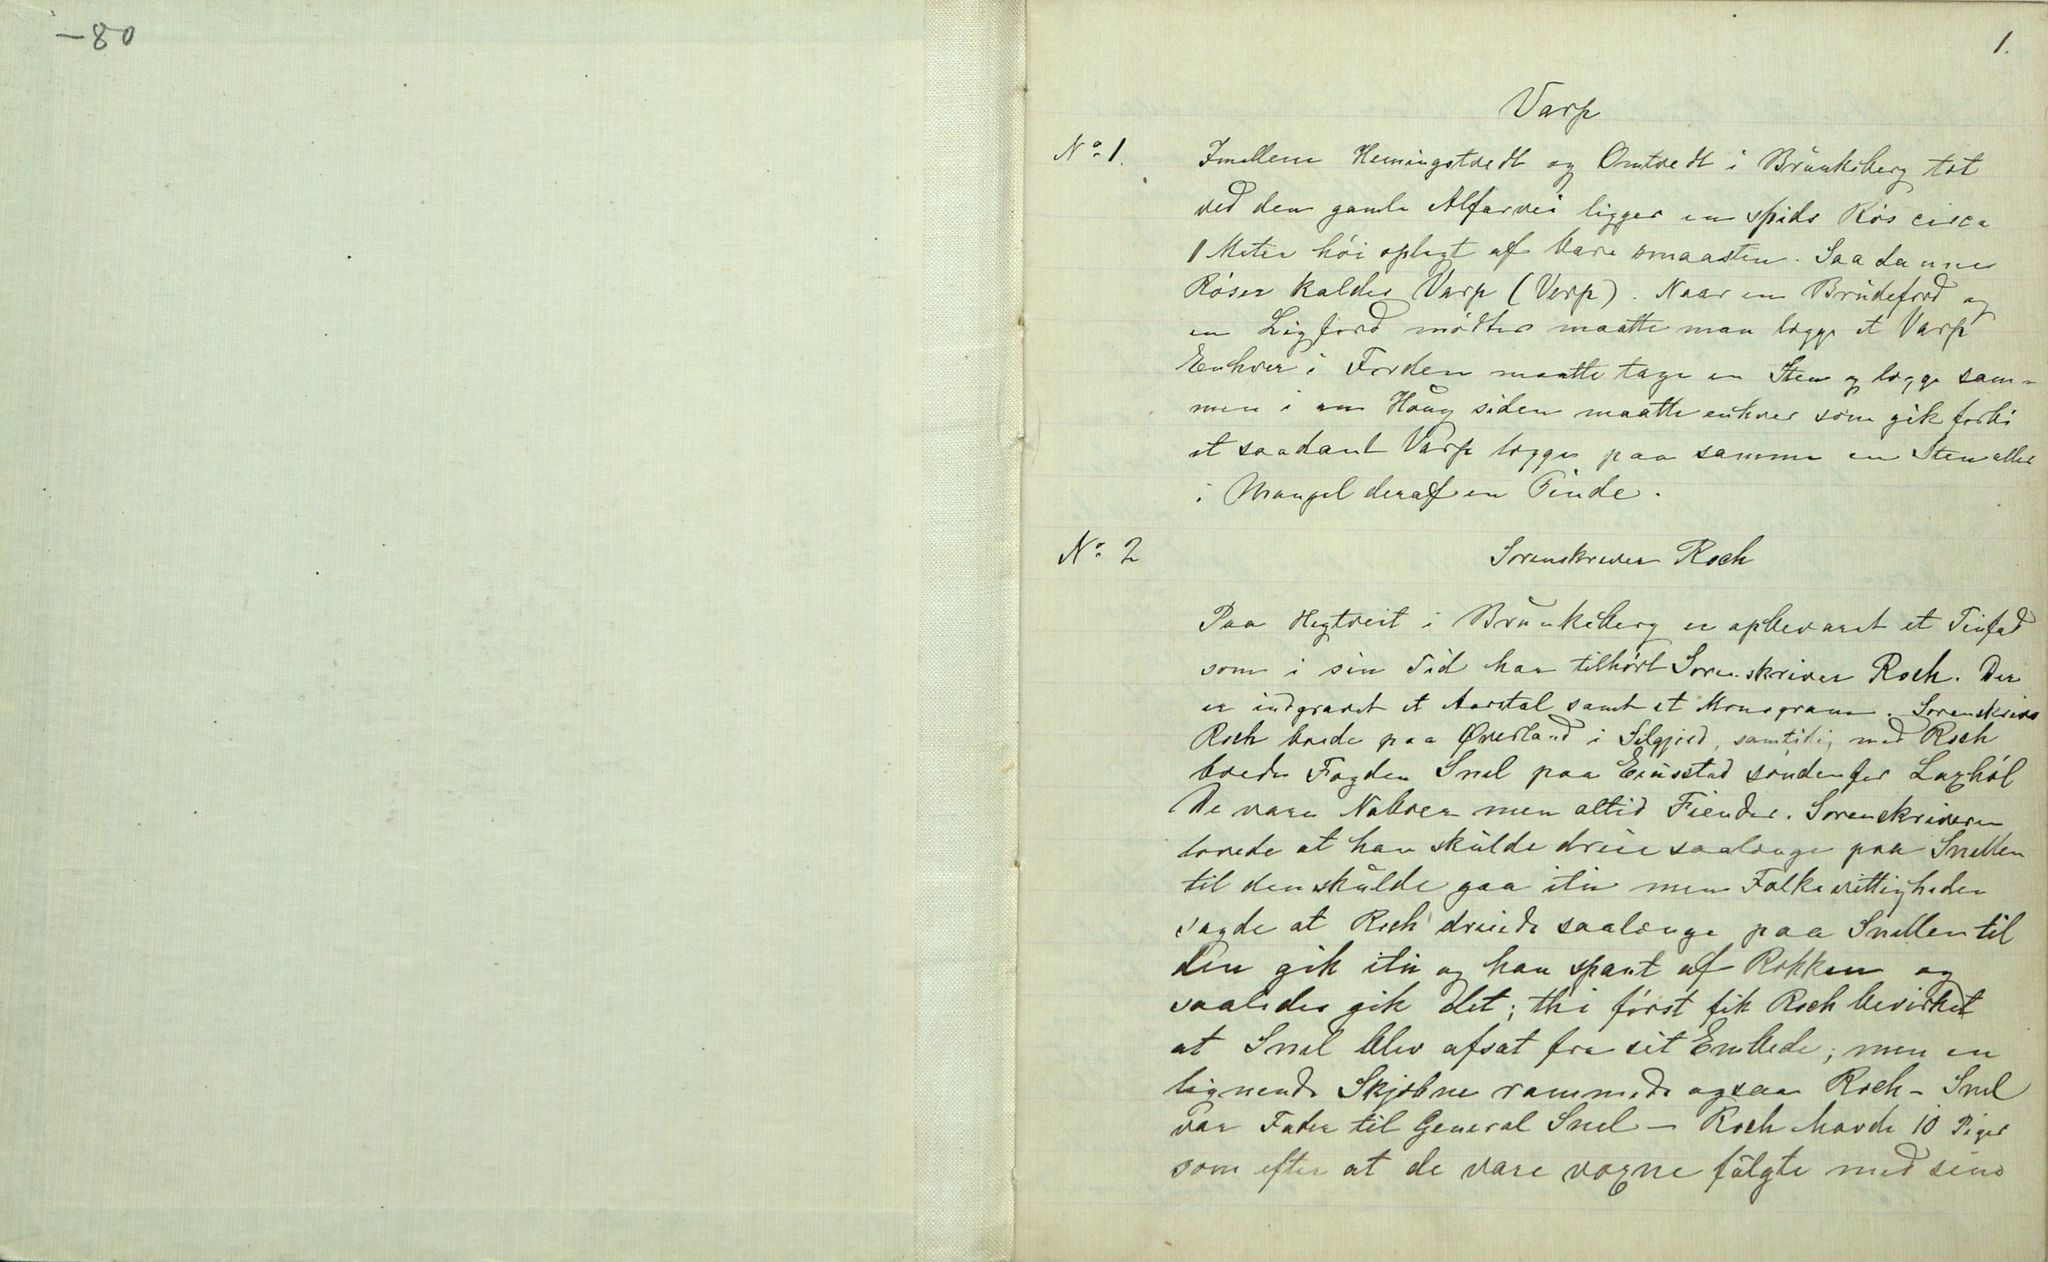 -80
1.
Varp
No 1. Imellem Hemingstvedt og Omtvedt i Brunkeberg tæt
ved den gamle Alfarvei ligger en spids Røs circa
1 Meter høi oplagt af bare smaasten. Saadanne
Røser kaldes Varp (Verp). Naar en Brudeferd og
en Ligferd mødtes maatte man lægge et Varp
Enhver i Ferden maatte tage en Sten og lægge sam-
men i en Houg siden maatte enhver som gik forbi
et saadant Varp lægge paa samme en Sten eller
i Mangel deraf en Pinde.
No 2 Sorenskriver Roch
Paa Hegtveit i Brunkeberg er opbevaret et Tinfad
som i sin Tid har tilhørt Sorenskriver Roch. Der
er indgravet et Aarstal samt et Monogram. Sorenskriver
Roch boede paa Øverland i Silgjord, samtidig med Roch
boede Fogden Snel paa Eiusstad søndenfor Laxhøl
De vare Naboer men altid Fiender. Sorenskriveren
lovede at han skulde dreie saalænge paa Snellen
til den skulde gaa itu men Folkevittigheden
sagde at Roch dreiede saalænge paa Snellen til
den gik itu og han spant af Rokken og
saaledes gik det; thi først fik Roch bevirket
at Snel blev afsat fra sit Embede; men en
lignende Skjæbne rammede ogsaa Roch - Snel
var Fader til General Snel - Roch havde 10 Piger
som efter at de vare voxne fulgte med sine